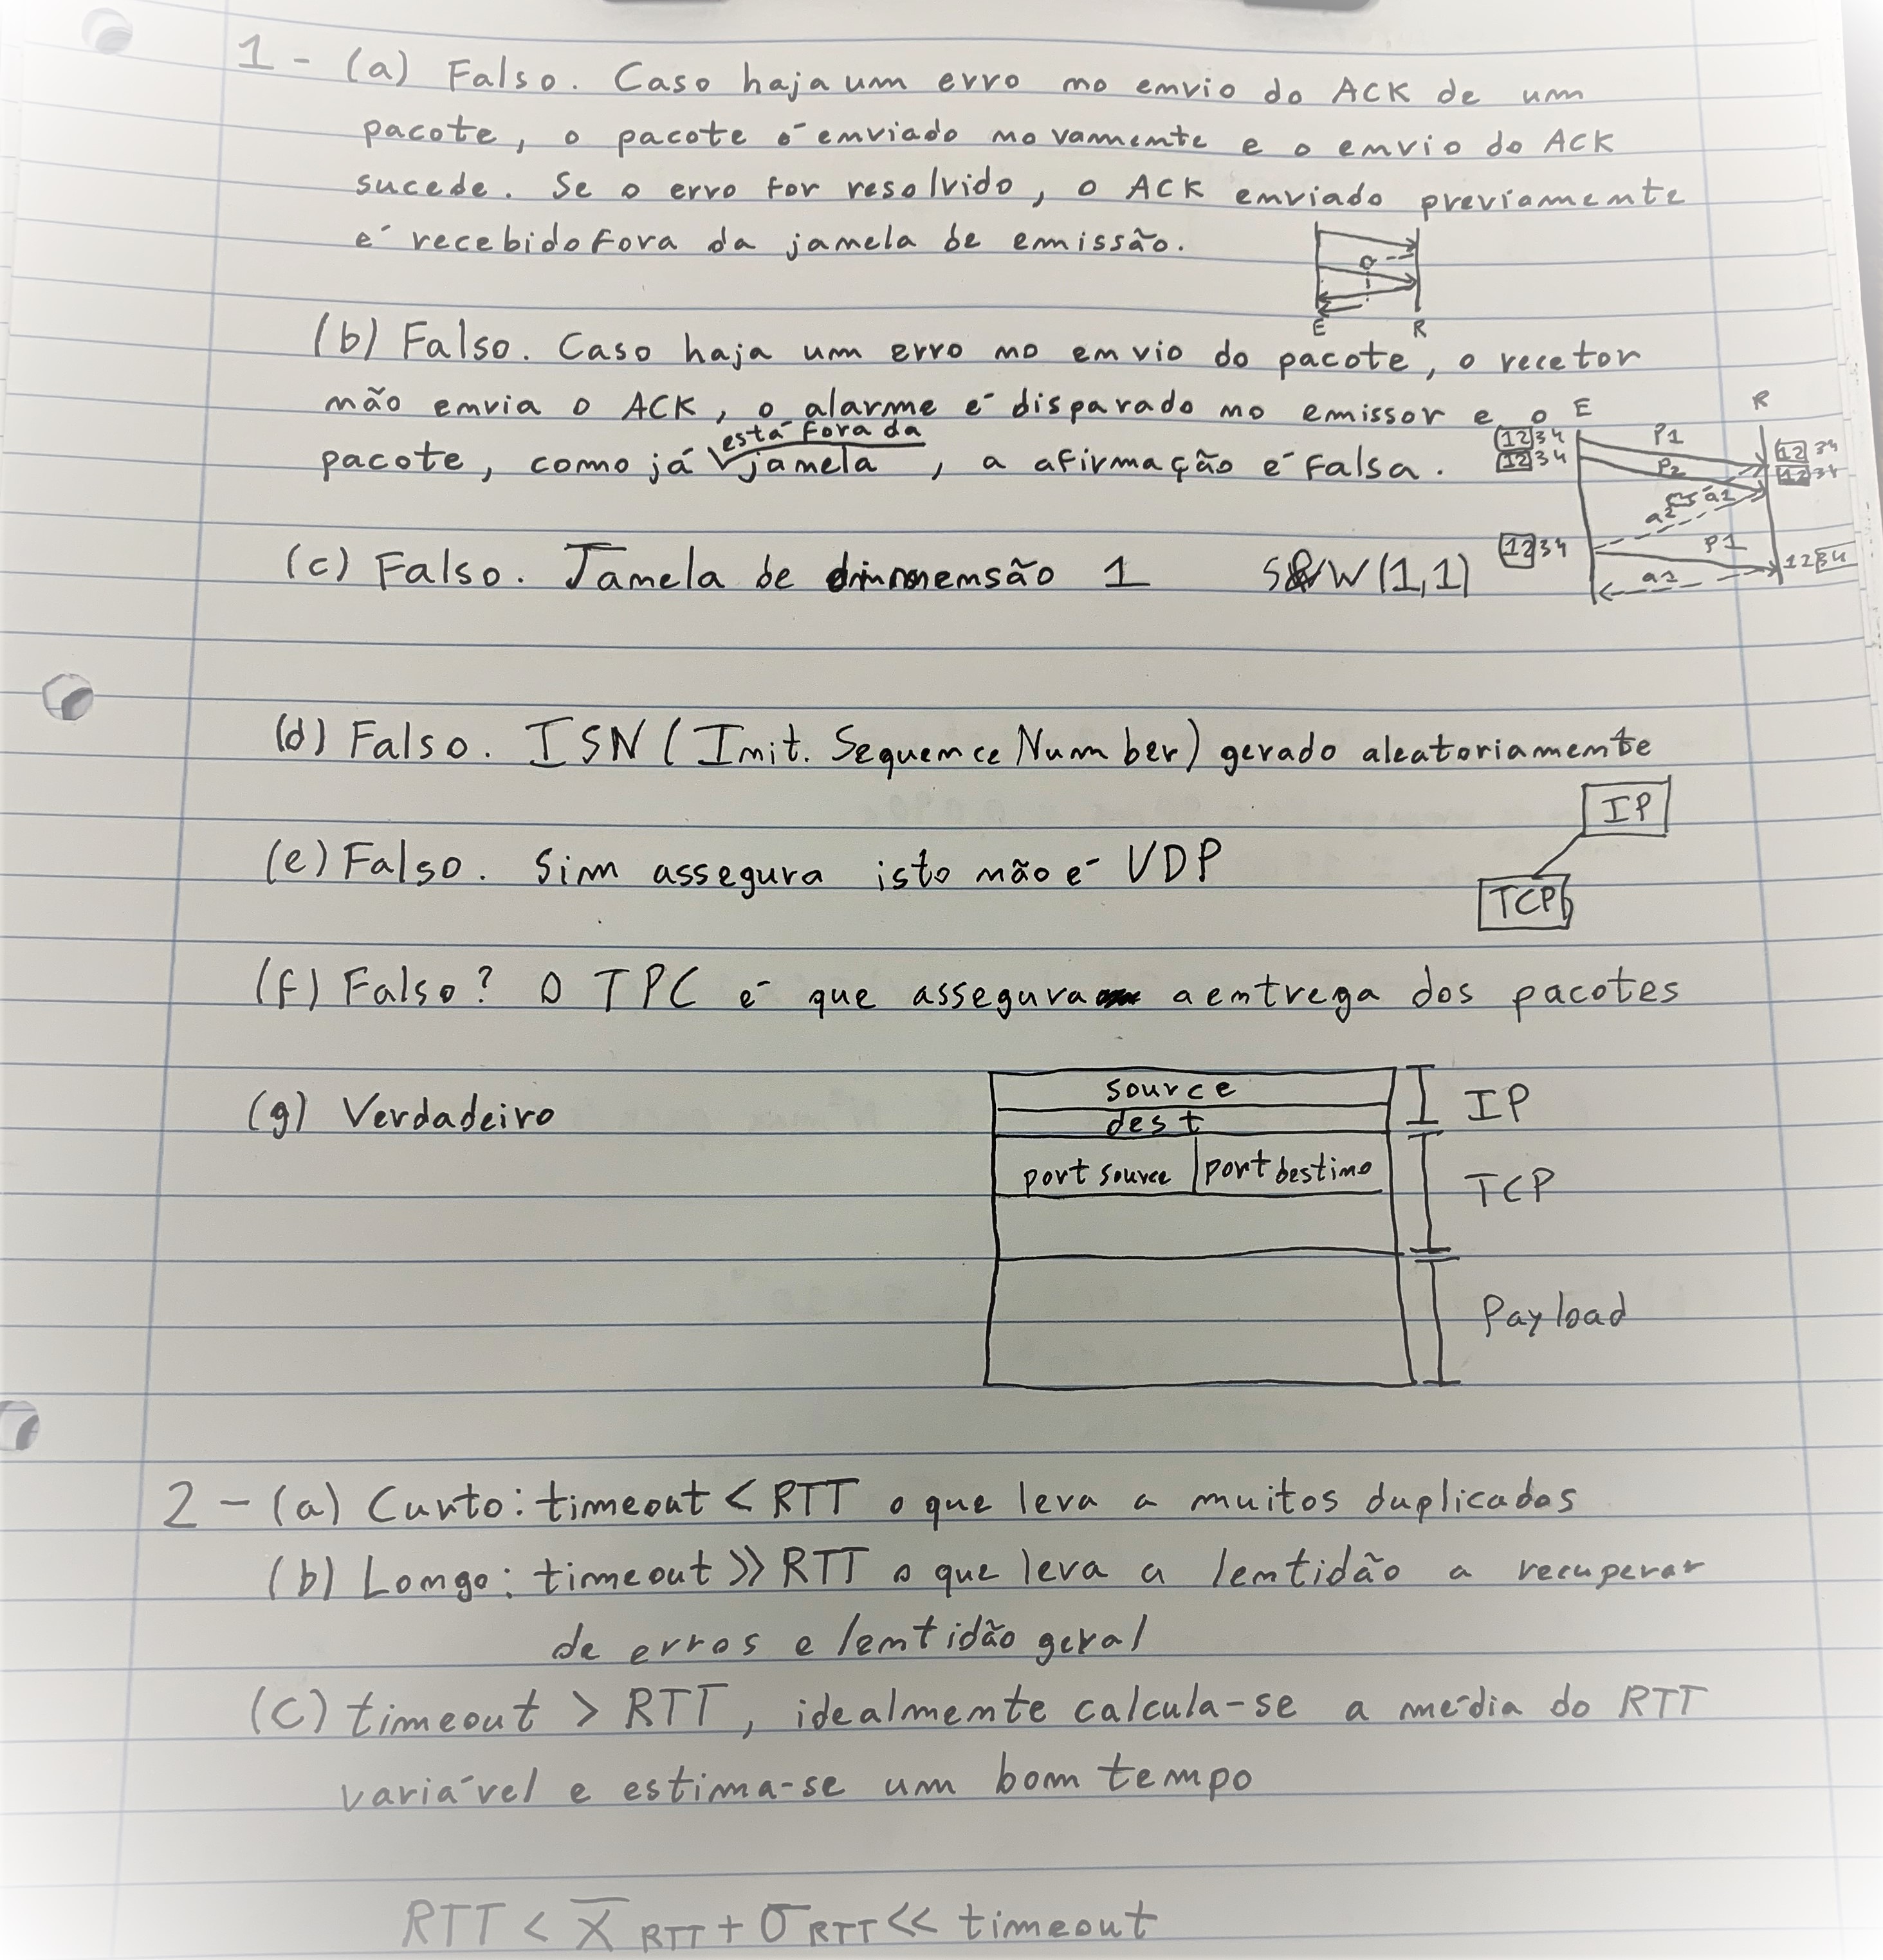 1 - (a) Falso. Caso haja um erro no envio do ACK de um
pacote, o pacote é enviado novamente e o envio do ACK
sucede. Se o erro for resolvido, o ACK enviado previamente
é recebido fora da janela de emissão.
E R
(b) Falso. Caso haja um erro no envio do pacote, o recetor
não envia o ACK, o alarme é disparado no emissor e o
está fora da
pacote, como já janela, a afirmação é falsa.
E R
1234 P1 1234
1234 P2 1234
a1
a2
1234 P1 1234
a1
(c) Falso. Janela de dimensão 1 S&W(1,1)
(d) Falso. ISN (Init. Sequence Number) gerado aleatoriamente
IP
(e) Falso. Sim assegura isto não é UDP
TCP
(f) Falso? O TPC é que assegura a entrega dos pacotes
(g) Verdadeiro
source
dest
IP
port source port destino
TCP
Payload
2 - (a) Curto: timeout < RTT o que leva a muitos duplicados
(b) Longo: timeout >> RTT o que leva a lentidão a recuperar
de erros e lentidão geral
(c) timeout > RTT, idealmente calcula-se a média do RTT
variável e estima-se um bom tempo
RTT < x̄ RTT + σ RTT << timeout